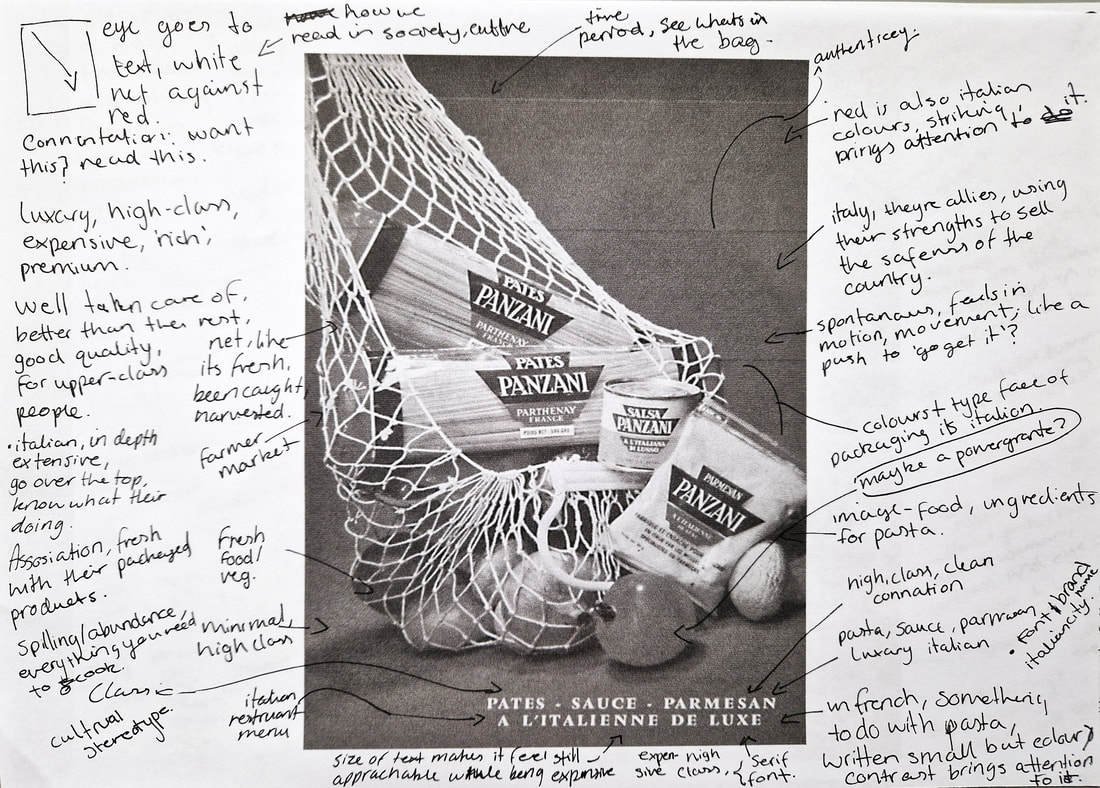 eye goes to
text, white
net against
red.
Connontation: want
this? read this.
how we
read in society, culture
time
period, see whats in
the bag.
authenticey.
red is also italian
colours, striking,
brings attention to it.
Luxury, high-class,
expensive, 'rich',
premium.
italy, theyre allies, using
their strengths to sell
the safeness of the
country.
Well taken care of,
better than the rest,
good quality,
for upper-class
people.
net, like
its fresh,
been caught,
harvested.
spontanous, feels in
motion, movement; like a
push to 'go get it'?
farmer
market
colours type face of
packaging its italion.
maybe a powergrante?
•italian, in depth
extensive,
go over the top,
know what their
doing.
image-food, ungredients
for pasta.
Assosiation, fresh
with their packaged
products.
fresh
food/
veg.
high, class, clean
connation
spilling/abundance,
everything you need
to cook.
minimal,
high class
pasta, sauce, parmesan,
luxury italian
• font & brand
name
italiancity.
Classic
cultrual
stereotype.
italian
restruant
menu
in french, something
to do with pasta,
written small but colour
contrast brings attention
to it.
size of text makes it feel still
apprachable while being expensive
expen-
sive
high
class,
serif
font.
PATES
PANZANI
PARTHENAY
FRANCE
PATES
PANZANI
PARTHENAY
FRANCE
POIDS NET: 500 GRS
SALSA
PANZANI
A L'ITALIANA
DI LUSSO
PARMESAN
PANZANI
A L'ITALIENNE
PATES - SAUCE - PARMESAN
A L'ITALIENNE DE LUXE